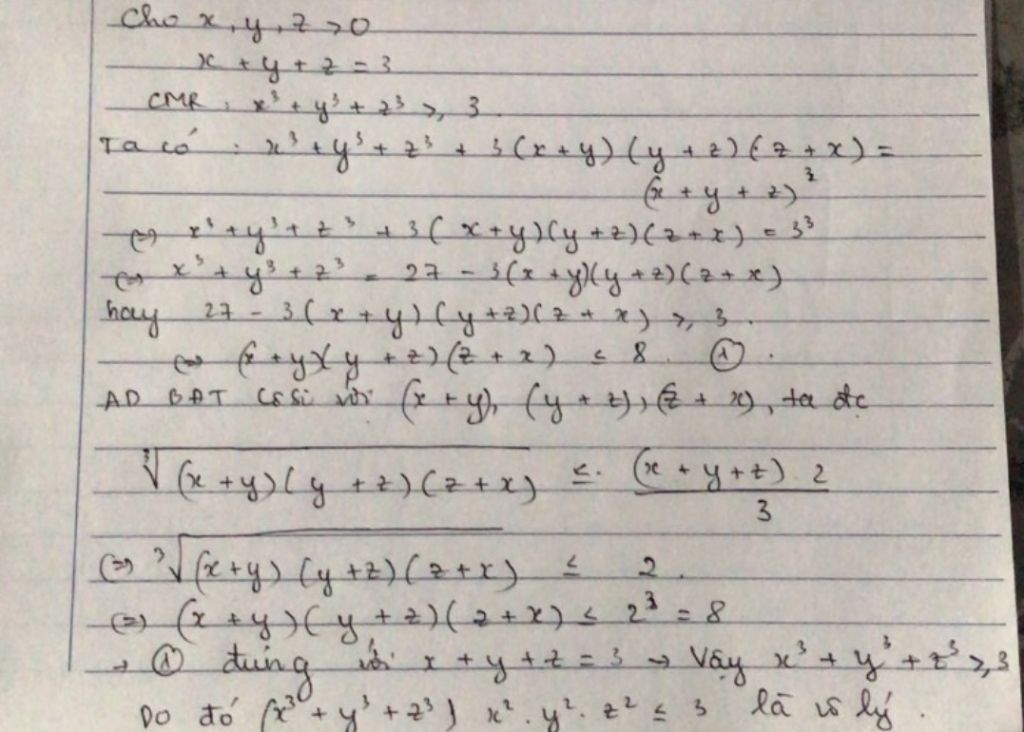 Cho x, y, z > 0
x + y + z = 3
CMR : x³ + y³ + z³ ≥ 3.
Ta có : x³ + y³ + z³ + 3(x+y)(y+z)(z+x) =
(x + y + z)³
(=) x³ + y³ + z³ + 3(x+y)(y+z)(z+x) = 3³
(=) x³ + y³ + z³ = 27 - 3(x+y)(y+z)(z+x)
hay 27 - 3(x+y)(y+z)(z+x) ≥ 3.
(=) (x+y)(y+z)(z+x) ≤ 8. ①.
AD BĐT Côsi với (x+y), (y+z), (z+x), ta đc
∛(x+y)(y+z)(z+x) ≤ (x+y+z).2 / 3
(=) ∛(x+y)(y+z)(z+x) ≤ 2.
(=) (x+y)(y+z)(z+x) ≤ 2³ = 8
→ ① đúng với x+y+z = 3 → Vậy x³ + y³ + z³ ≥ 3
Do đó (x³ + y³ + z³) x². y². z² ≤ 3 là vô lý.